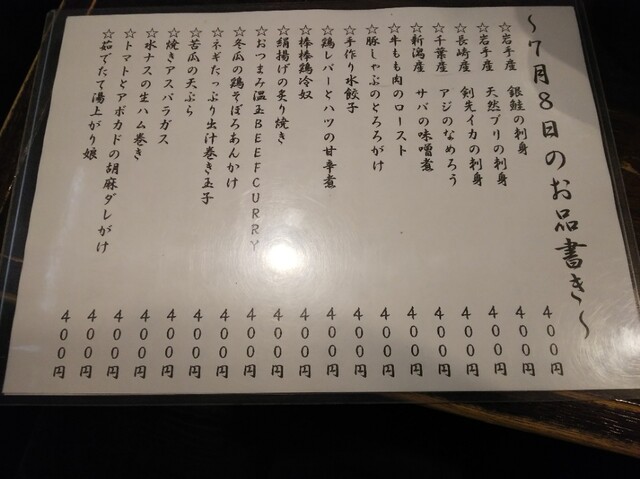 ～７月８日のお品書き～
☆岩手産　銀鮭の刺身　４００円
☆岩手産　天然ブリの刺身　４００円
☆長崎産　剣先イカの刺身　４００円
☆千葉産　アジのなめろう　４００円
☆新潟産　サバの味噌煮　４００円
☆牛もも肉のロースト　４００円
☆豚しゃぶのとろろがけ　４００円
☆手作り水餃子　４００円
☆鶏レバーとハツの甘辛煮　４００円
☆棒棒鶏冷奴　４００円
☆絹揚げの炙り焼き　４００円
☆おつまみ温玉ＢＥＥＦＣＵＲＲＹ　４００円
☆冬瓜の鶏そぼろあんかけ　４００円
☆ネギたっぷり出汁巻き玉子　４００円
☆苦瓜の天ぷら　４００円
☆焼きアスパラガス　４００円
☆水ナスの生ハム巻き　４００円
☆トマトとアボカドの胡麻ダレがけ　４００円
☆茹でたて湯上がり娘　４００円